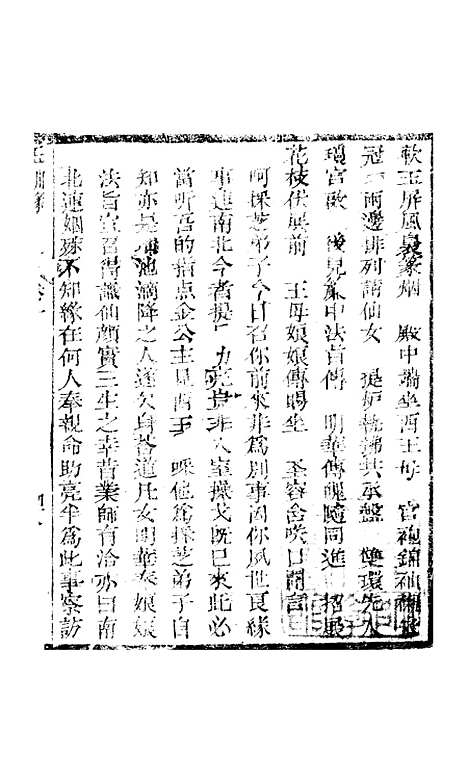 軟玉屏風裊篆烟　殿中端坐西王母　宮袍錦袖
冠　兩邊排列諸仙女　提炉執拂共承盤　雙環先
瓊宮歐　後見簾中法旨傳　明華傳醜隨同進　招展
花枝伏展前　王母娘娘傳賜坐　圣容含咲口開言
呵採芝弟子今日召你前來非爲別事因你夙世良緣
事連南北今者提　力亮豈非入室操戈既已來此必
當听吾的指点金公主見西王　喚他爲採芝弟子自
知亦是瑤池謫降之人遂欠身答道凡女明華奉娘娘
法旨宣召得識仙顔實三生之幸昔業師有洽亦曰南
北連姻殊不知緣在何人奉親命助亮牟爲此事察訪